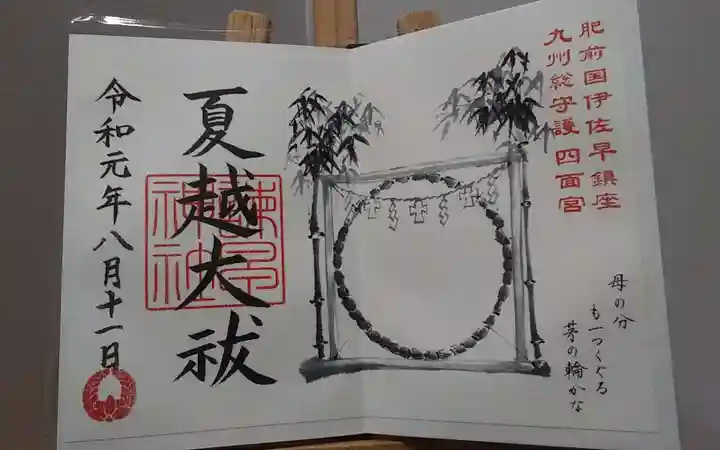 肥前国伊佐早鎮座
九州総守護 四面宮
母の分
も一つくぐる
茅の輪かな
夏越大祓
諫早神社
令和元年八月十一日